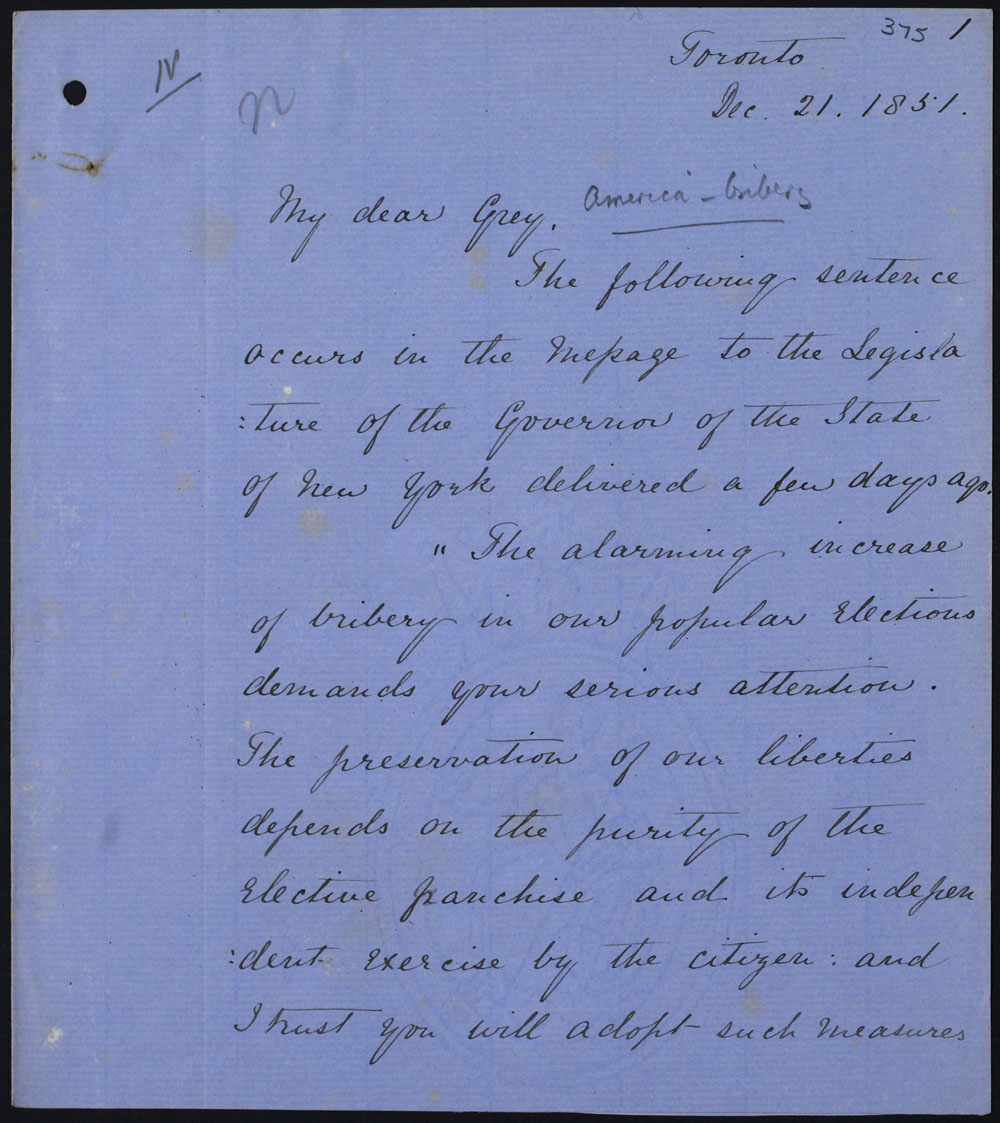 375 1
IV
n
Toronto
Dec. 21. 1851.
America - bribery
My dear Grey.
The following sentence
occurs in the Message to the Legisla
:ture of the Governor of the State
of New York delivered a few days ago.
" The alarming increase
of bribery in our popular Elections
demands your serious attention.
The preservation of our liberties
depends on the purity of the
Elective franchise and its indepen
:dent exercise by the citizen: and
I trust you will adopt such measures